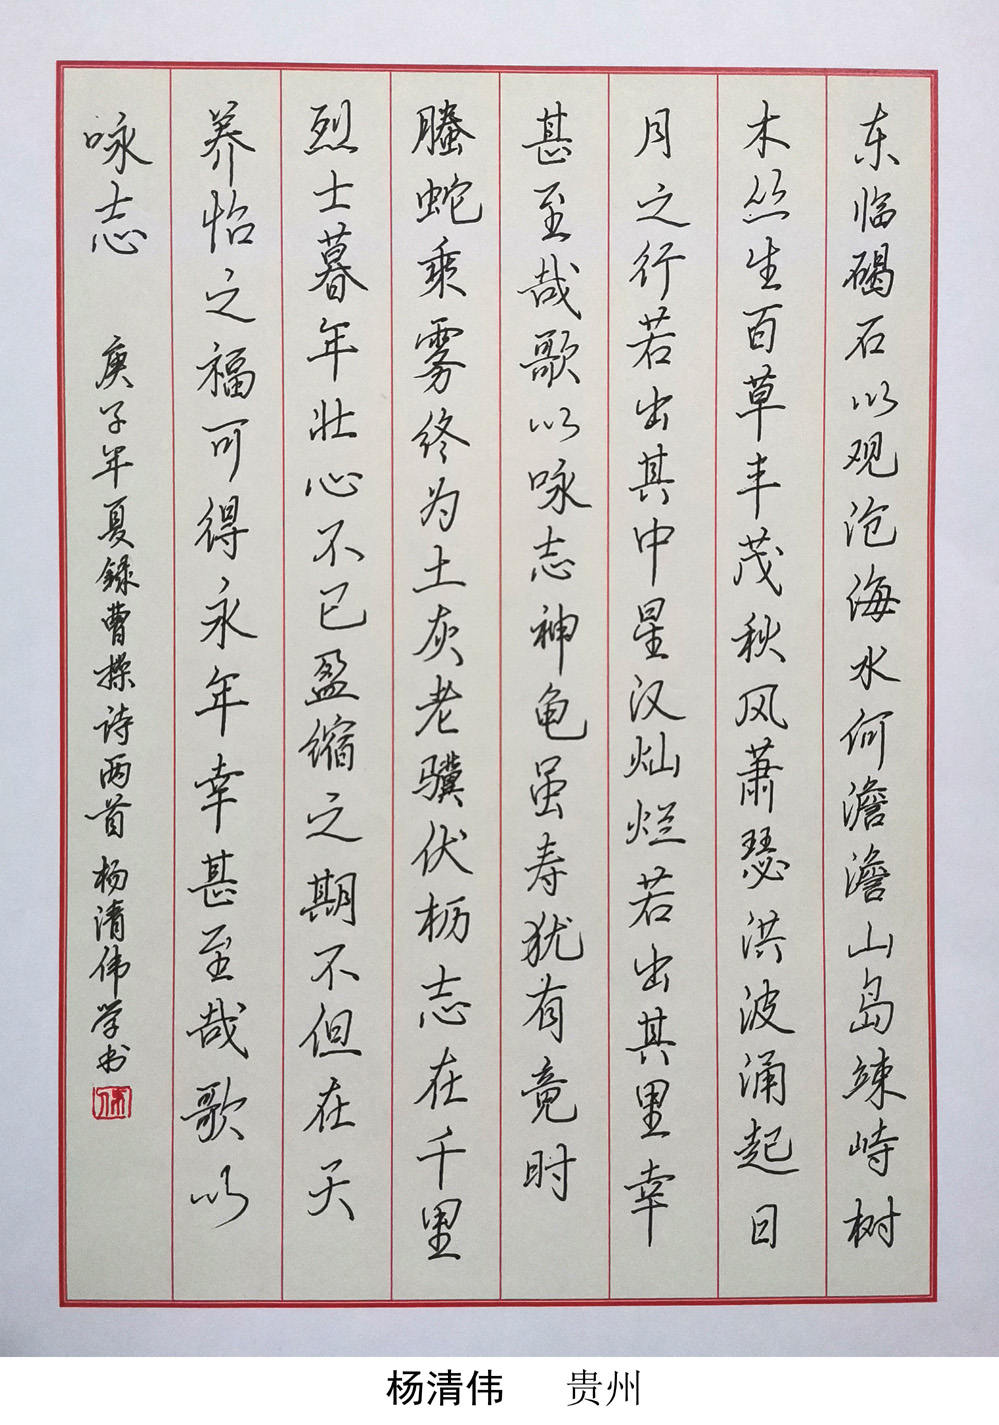 东临碣石以观沧海水何澹澹山岛竦峙树
木丝生百草丰茂秋风萧瑟洪波涌起日
月之行若出其中星汉灿烂若出其里幸
甚至哉歌以咏志神龟虽寿犹有竟时
螣蛇乘雾终为土灰老骥伏枥志在千里
烈士暮年壮心不已盈缩之期不但在天
养怡之福可得永年幸甚至哉歌以
咏志 庚子年夏録曹操诗两首杨清伟学书
杨清伟 贵州